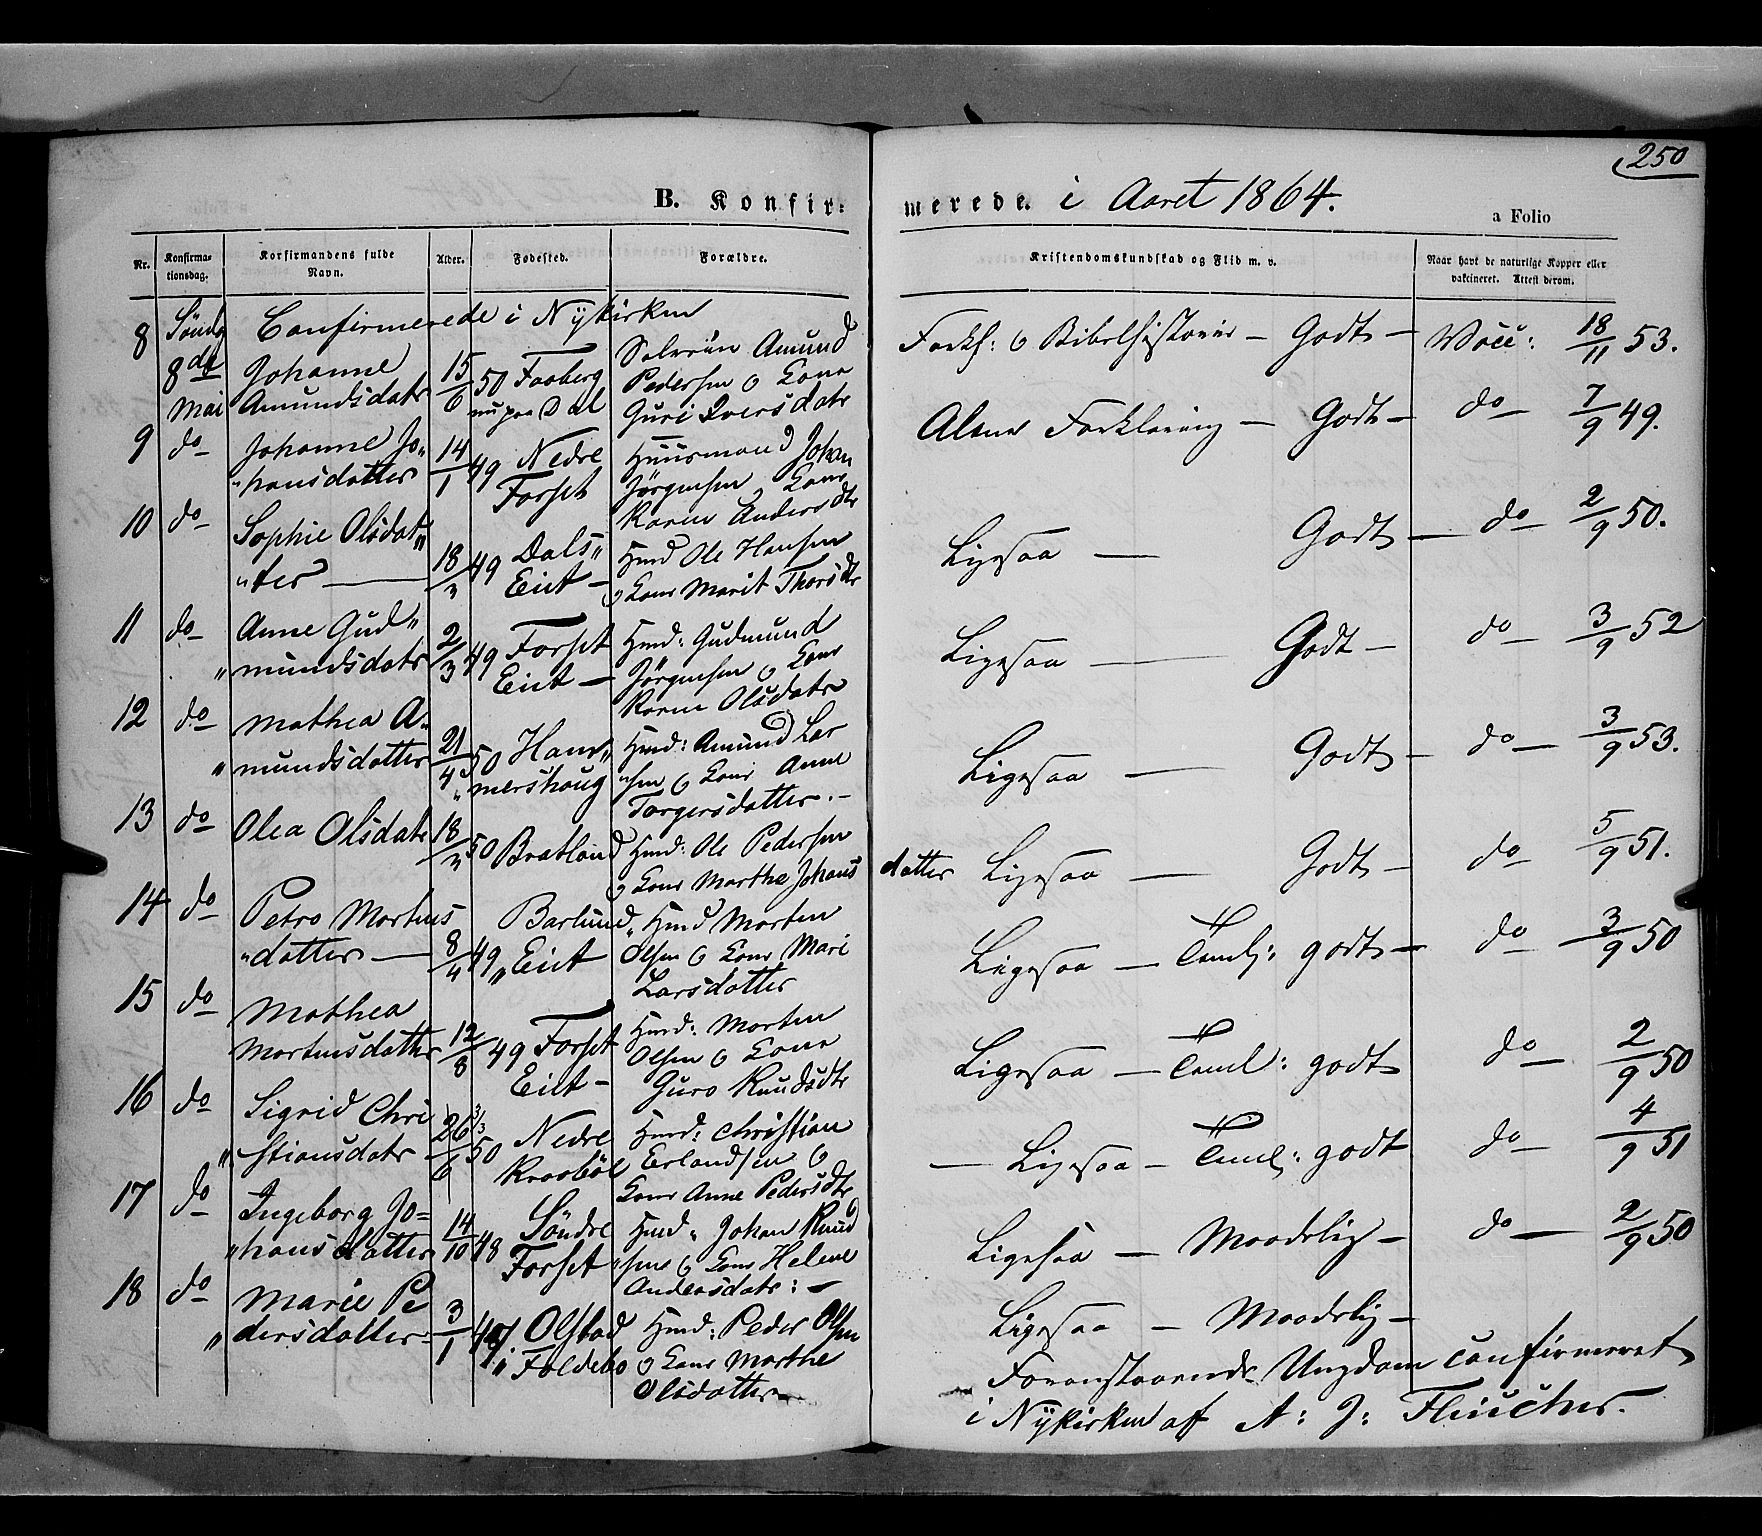 250
B. Konfir-
merede. i Aaret 1864.
a Folio
Nr.
Konfirma-
tionsdag.
Korfirmandens fulde
Navn.
Alder.
Fødested.
Forældre.
Kristendomskundskab og Flid m. v.
Naar havt de naturlige Kopper eller
vakcineret. Attest derom.
Confirmerede i Nykirken
8 Søndg
8de
Mai
Johanne
Amundsdatr
15/6 50
Faaberg
nu paa Dal
Selveier Amund
Pedersen o Kone
Guri Iversdatr
Forkl: o Bibelhistorie – Godt – Vacc: 18/11 53.
9 do
Johanne Jo„
„hansdatter
14/1 49
Nedre
Forset
Huusmand Johan
Jørgensen o Kone
Karen Andersdtr
Alene Forklaring – Godt – do – 7/9 49.
10 do
Sophie Olsdat„
„ter —
18/3 49
Dals„
Eiet –
Hmd Ole Hansen
o Kone Marit Thorsdtr
Ligesaa — Godt – do – 2/9 50.
11 do
Anne Gud„
„mundsdatr
2/3 49
Forset
Eiet –
Hmd: Gudmund
Jørgensen o Kone
Karen Olsdatr
Ligesaa — Godt – do – 3/9 52
12 do
Mathea A„
„mundsdatter
21/4 50
Ham„
„mershoug
Hmd: Amund Lar
„sen o Kone Anne
Torgersdatter. –
Ligesaa — Godt – do – 3/9 53.
13 do
Olea Olsdatr
18/3 50
Bratland
Hmd: Ole Pedersen
o Kone Marthe Johans
datter Ligesaa — Godt – do 5/9 51.
14 do
Petra Mortens
„datter —
8/4 49
Barlund„
„Eiet
Hmd Morten
Olsen o Kone Mari
Larsdatter
Ligesaa – Teml: godt – do – 3/9 50
15 do
Mathea
Mortensdatter
12/8 49
Forset
Eiet –
Hmd: Morten
Olsen o Kone
Guro Knudsdtr
Ligesaa – Teml: godt do – 2/9 50
16 do
Sigrid Chri
„stiansdatr
26/6 50
Nedre
Kraabøl
Hmd: Christian
Erlandsen o
Kone Anne Pedersdtr
– Ligesaa – Teml: godt do – 4/9 51
17 do
Ingeborg Jo=
„hansdatter
14/10 48
Søndre
Forset
Hmd„ Johan Knud
„sen o Kone Helene
Andersdatr: –
Ligesaa – Maadelig – do — 2/9 50
18 do
Marie Pe
„dersdatter
3/1
Olstad
i Foldebo
Hmd: Peder Olsen
o Kone Marthe
Olsdatter
Ligesaa – Maadelig –
Foranstaaende Ungdom confirmeret
i Nykirken af A: J: